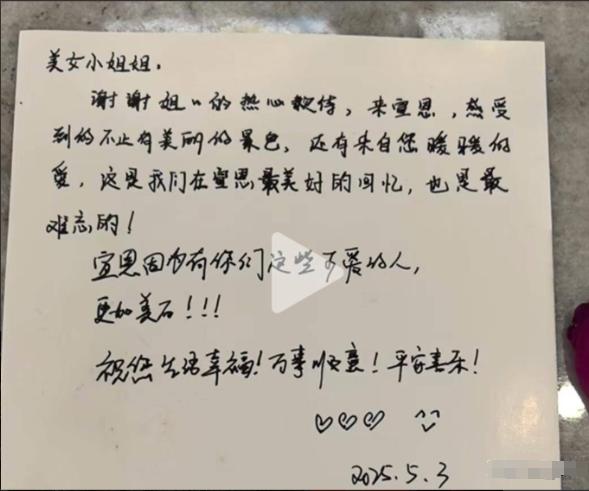 美女小姐姐。
谢谢姐〃的热心款待，来宣恩，感受
到的不止有美丽的景色，还有来自您暖暖的
爱，这是我们在宣恩最美好的回忆，也是最
难忘的！
宣恩因为有你们这些可爱的人，
更加美丽！！！
祝您生活幸福！万事顺意！平安喜乐！
2025.5.3